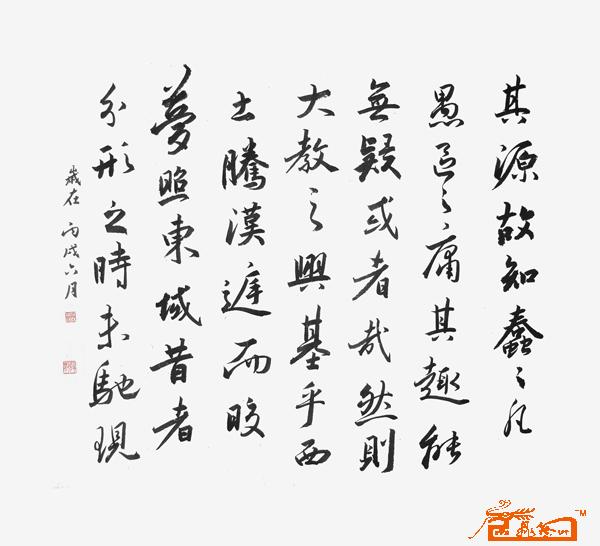 其源故知蠢々凡
愚區々庸其趣能
無疑或者哉然則
大教之興基乎西
土騰漢庭而晈
夢照東域昔者
分形之時未馳現
歲在丙戌六月